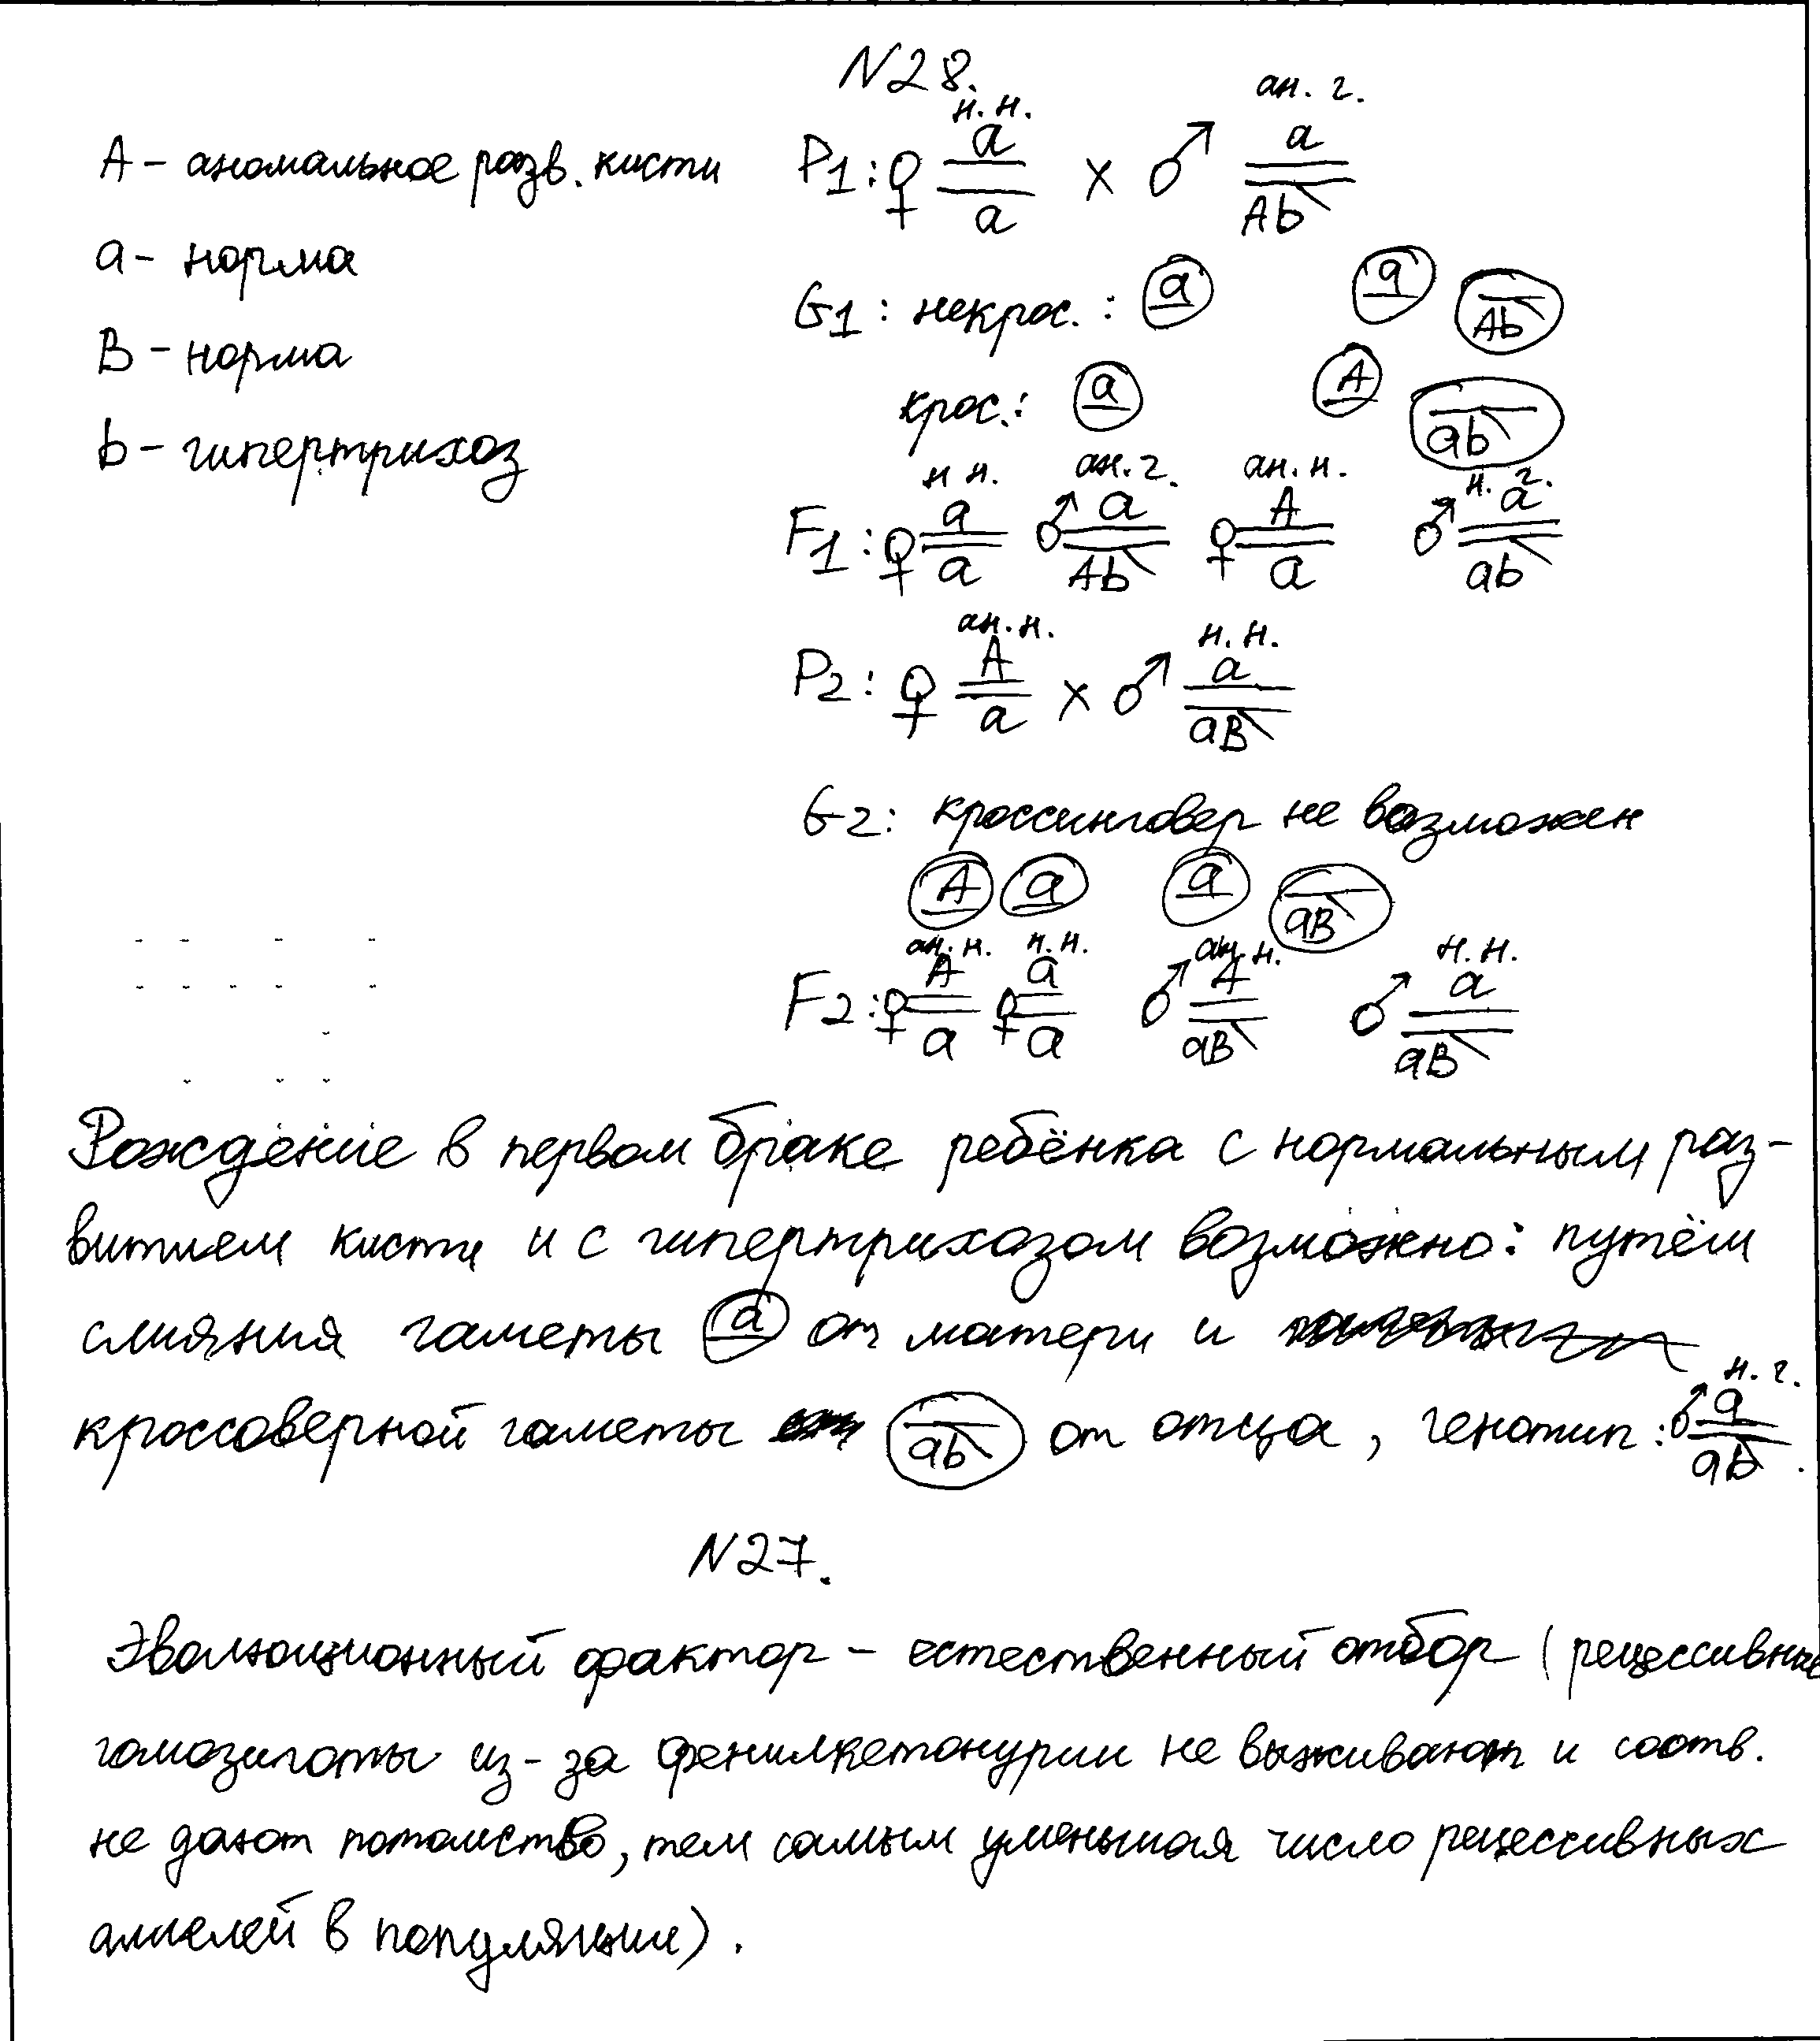 N28.
А - аномальное разв. кисти
а - норма
В - норма
b - гипертрихоз
н. н. ан. г.
P1: ♀ a/a x ♂ a/Ab
G1: некрос.: a a Ab
крос.: a A ab
н н. ан. г. ан. н. н. г.
F1: ♀ a/a ♂ a/Ab ♀ A/a ♂ a/ab
ан. н. н. н.
P2: ♀ A/a x ♂ a/aB
G2: кроссинговер не возможен
A a a aB
ан. н. н. н. ан. н. н. н.
F2: ♀ A/a ♀ a/a ♂ A/aB ♂ a/aB
Рождение в первом браке ребёнка с нормальным раз-
витием кисти и с гипертрихозом возможно: путём
слияния гаметы a от матери и
кроссоверной гаметы ab от отца, генотип: ♂ a/ab н. г.
N27.
Эволюционный фактор - естественный отбор (рецессивные
гомозиготы из-за фенилкетонурии не выживают и соотв.
не дают потомство, тем самым уменьшая число рецессивных
аллелей в популяции).